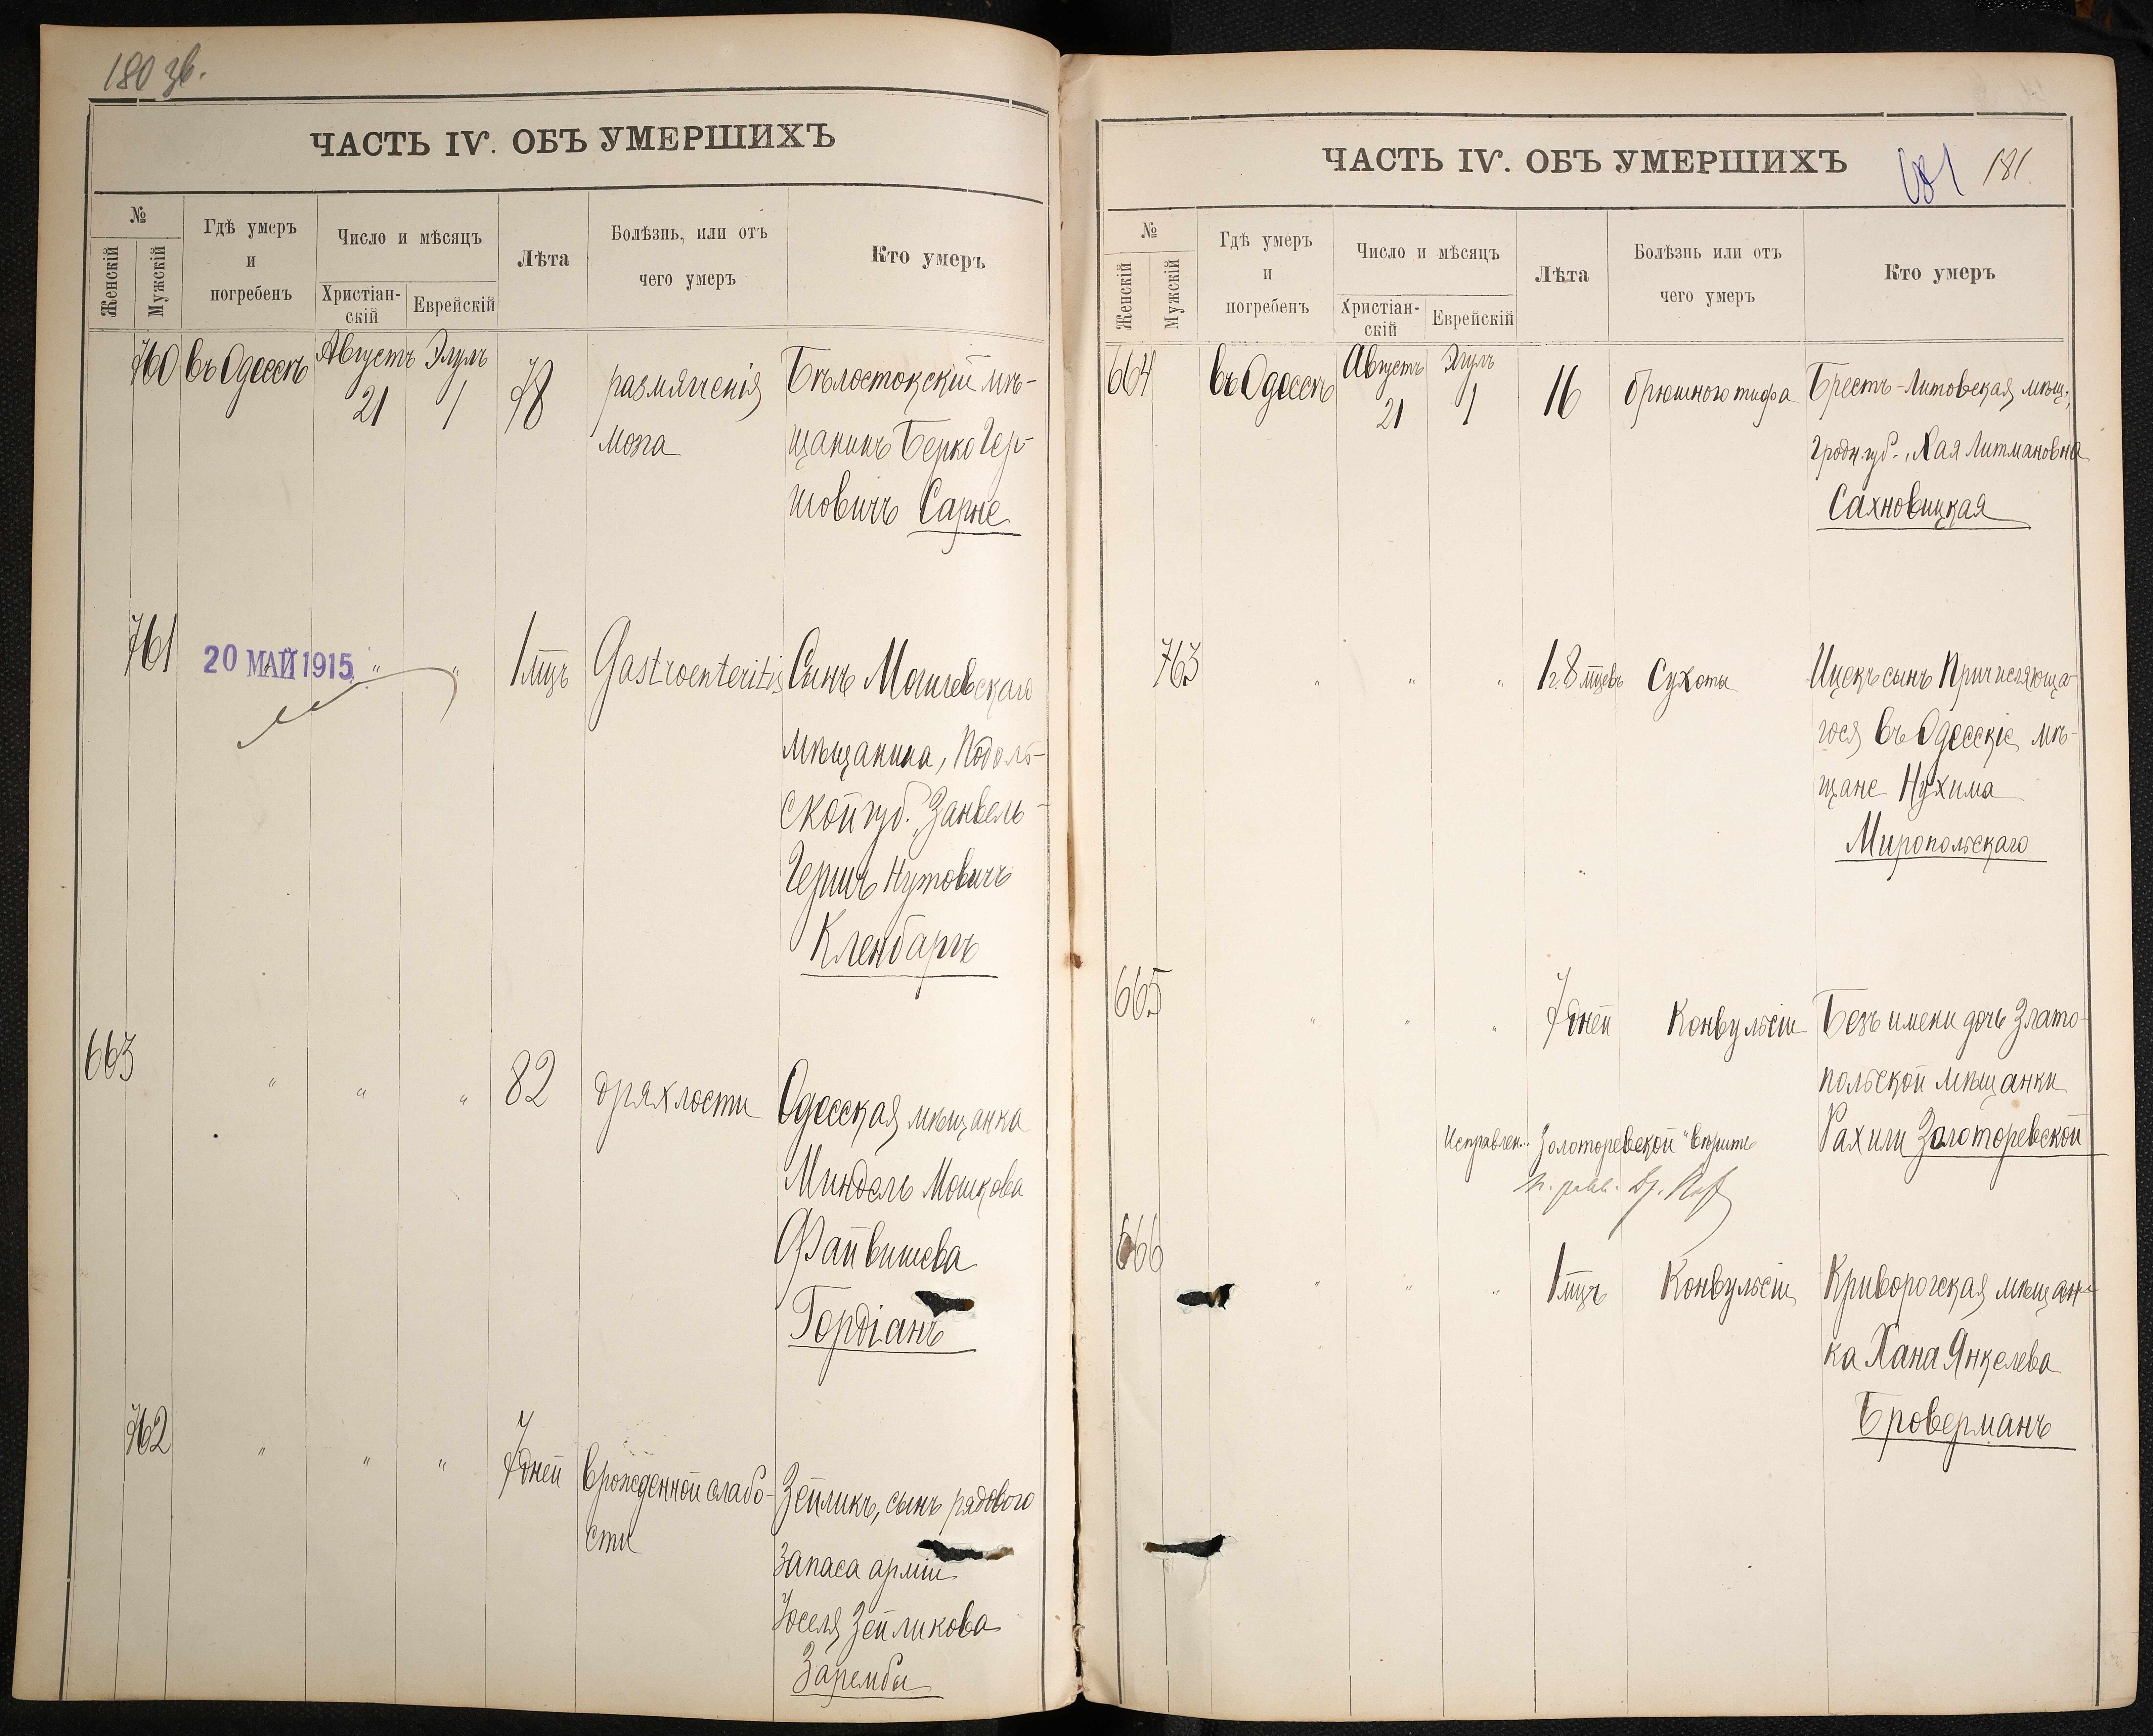 180 зв.
ЧАСТЬ IV. ОБЪ УМЕРШИХЪ
№
Женскій
Мужскій
Гдѣ умеръ
и
погребенъ
Число и мѣсяцъ
Христіан-
скій
Еврейскій
Лѣта
Болѣзнь, или отъ
чего умеръ
Кто умеръ
760 въ Одессѣ Августъ Элулъ 78 размягченія Бѣлостокскій мѣ-
21 1 мозга щанинъ Берко Гер-
шовичъ Сарне
761 20 МАЙ 1915 " " 1 мцъ Gastroenteritis Сынъ Могилевскаго
мѣщанина, Подоль-
ской губ. Занвель-
Гершъ Нутовичъ
Кленбаргъ
663 " " " 82 дряхлости Одесская мѣщанка
Миндель Мошкова
Файвишева
Гордіанъ
762 " " " 7 дней врожденной слабо- Зейликъ, сынъ рядового
сти запаса арміи
Іоселя Зейликова
Зарембы
ЧАСТЬ IV. ОБЪ УМЕРШИХЪ 181
№
Женскій
Мужскій
Гдѣ умеръ
и
погребенъ
Число и мѣсяцъ
Христіан-
скій
Еврейскій
Лѣта
Болѣзнь или отъ
чего умеръ
Кто умеръ
664 въ Одессѣ Августъ Элулъ 16 брюшного тифа Брестъ-Литовская мѣщ.,
21 1 Гродн. губ., Хая Литмановна
Сахновицкая
763 " " " 1 г. 8 мцевъ Сухоты Ицекъ сынъ Причисляюща-
гося въ Одесскіе мѣ-
щане Нухима
Миропольскаго
665 " " " 7 дней Конвульсіи Безъ имени дочь Злато-
польской мѣщанки
Исправлен. "Золоторевской" вѣрить Рахили Золоторевской
666 " " " 1 мцъ Конвульсіи Криворогская мѣщан-
ка Хана Янкелева
Броверманъ